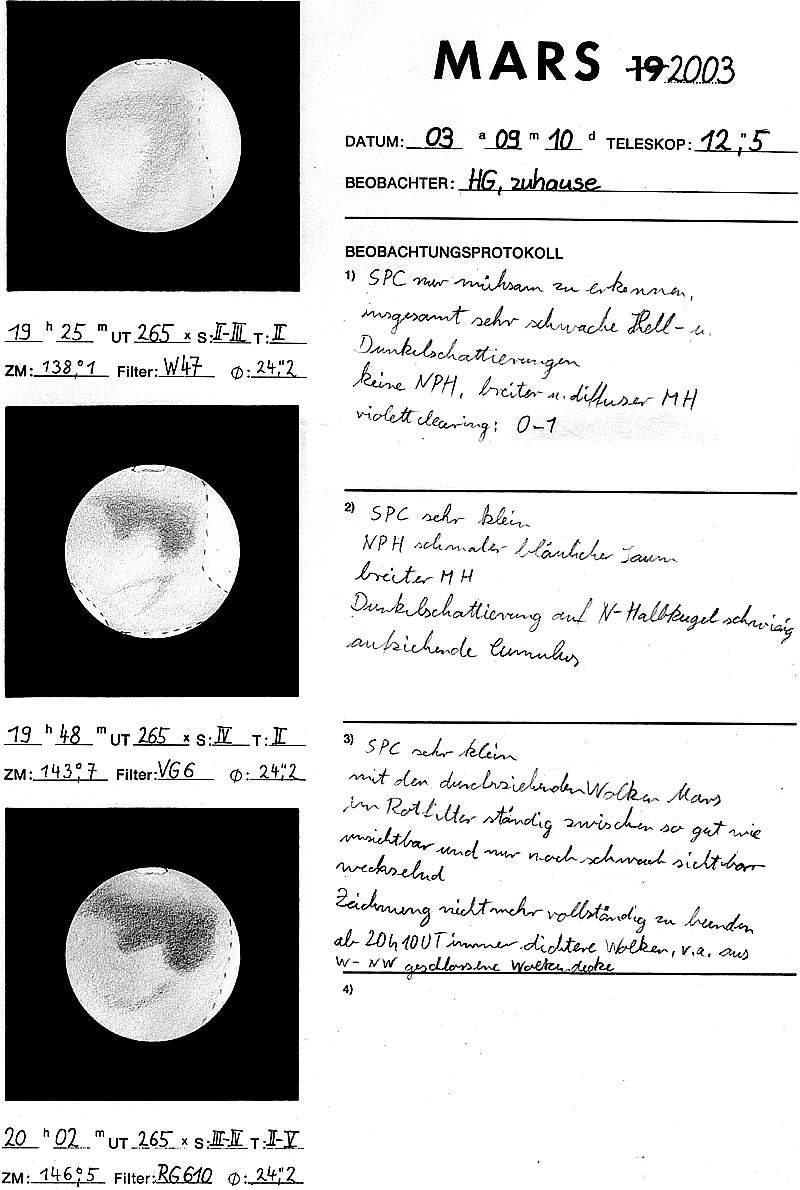 MARS 19 2003
DATUM: 03 a 09 m 10 d TELESKOP: 12,"5
BEOBACHTER: HG, zuhause
BEOBACHTUNGSPROTOKOLL
1) SPC nur mühsam zu erkennen,
insgesamt sehr schwache Hell- u.
Dunkelschattierungen
keine NPH, breiter u. diffuser MH
violett clearing: 0-1
19 h 25 m UT 265 x S: II-III T: II
ZM: 138,°1 Filter: W47 Ø: 24,"2
2) SPC sehr klein
NPH schmaler bläulicher Saum
breiter MH
Dunkelschattierung auf N-Halbkugel schwierig
aufziehende Cumulus
19 h 48 m UT 265 x S: IV T: II
ZM: 143,°7 Filter: VG6 Ø: 24,"2
3) SPC sehr klein
mit den durchziehenden Wolken Mars
im Rotfilter ständig zwischen so gut wie
unsichtbar und nur noch schwach sichtbar
wechselnd
Zeichnung nicht mehr vollständig zu beenden
ab 20h10UT immer dichtere Wolken, v.a. aus
W-NW geschlossene Wolkendecke
4)
20 h 02 m UT 265 x S: III-IV T: II-V
ZM: 146,°5 Filter: RG610 Ø: 24,"2